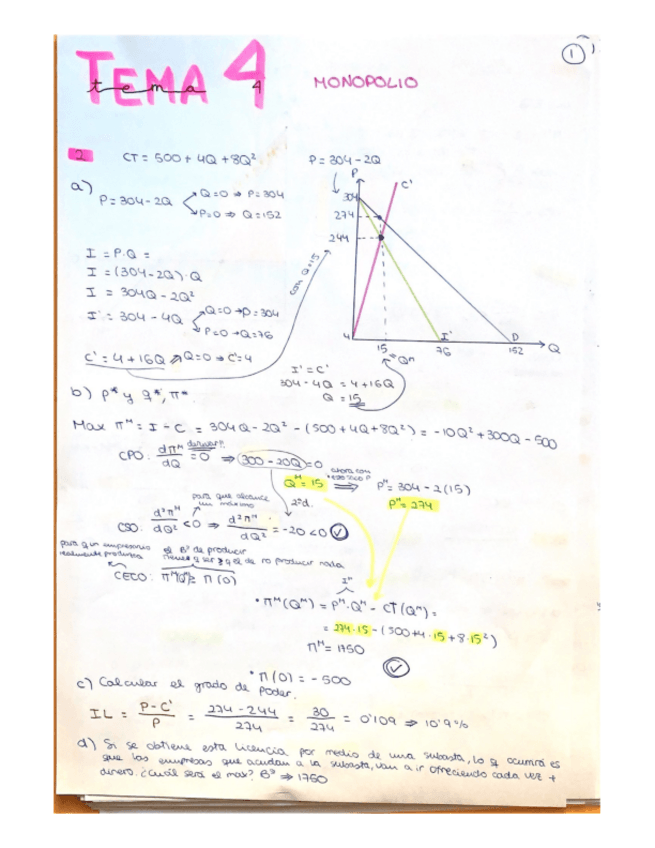 1
TEMA 4
tema 4
MONOPOLIO
2 CT = 500 + 4Q + 8Q² P = 304 - 2Q
a) P = 304 - 2Q Q=0 ⇒ P=304
P=0 ⇒ Q=152
I = P·Q =
I = (304-2Q)·Q
I = 304Q - 2Q²
I' = 304 - 4Q Q=0 → P=304
P=0 → Q=76
C' = 4 + 16Q ⇒ Q=0 → C'=4
con Q=15
P
C'
304
274
244
4
15
Qm
I'
76
D
152
Q
I' = C'
304 - 4Q = 4 + 16Q
Q = 15
b) p* y q*, π*
Max πᴹ = I - C = 304Q - 2Q² - (500+4Q+8Q²) = -10Q² + 300Q - 500
CPO: dπᴹ/dQ = 0 ⇒ 300 - 20Q = 0
derivar
Qᴹ = 15 ⇒ Pᴹ = 304 - 2(15)
ahora con
Pᴹ = 274
para que alcance
un máximo
2ª d.
CSO: d²πᴹ/dQ² < 0 ⇒ d²πᴹ/dQ² = -20 < 0
para q un empresario
realmente produzca
el Bº de producir
tiene q ser ≥ q el de no producir nada
CECO: πᴹ(Qᴹ) ≥ π(0)
Iᴹ
• πᴹ(Qᴹ) = Pᴹ·Qᴹ - CT(Qᴹ) =
= 274·15 - (500+4·15+8·15²)
πᴹ = 1750
• π(0) = -500
c) Calcular el grado de poder.
IL = P-C'/P = 274-244/274 = 30/274 = 0'109 ⇒ 10'9%
d) Si se obtiene esta licencia por medio de una subasta, lo q ocurrirá es
que las empresas que acudan a la subasta, van a ir ofreciendo cada vez +
dinero. ¿Cuál será el max? Bº ⇒ 1750